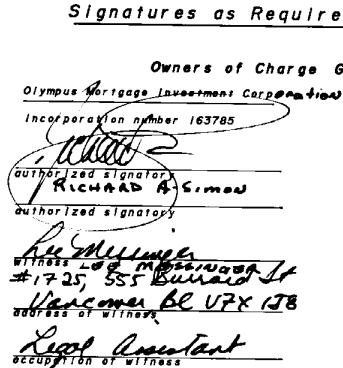 Signatures as Require
Owners of Charge G
Olympus Mortgage Investment Corporation
incorporation number 163785
authorized signatory
RICHARD A. SIMON
authorized signatory
Lee Messinger
witness LEE MESSINGER
#1725, 555 Burrard St
Vancouver BC V7X 1J8
address of witness
Legal Assistant
occupation of witness